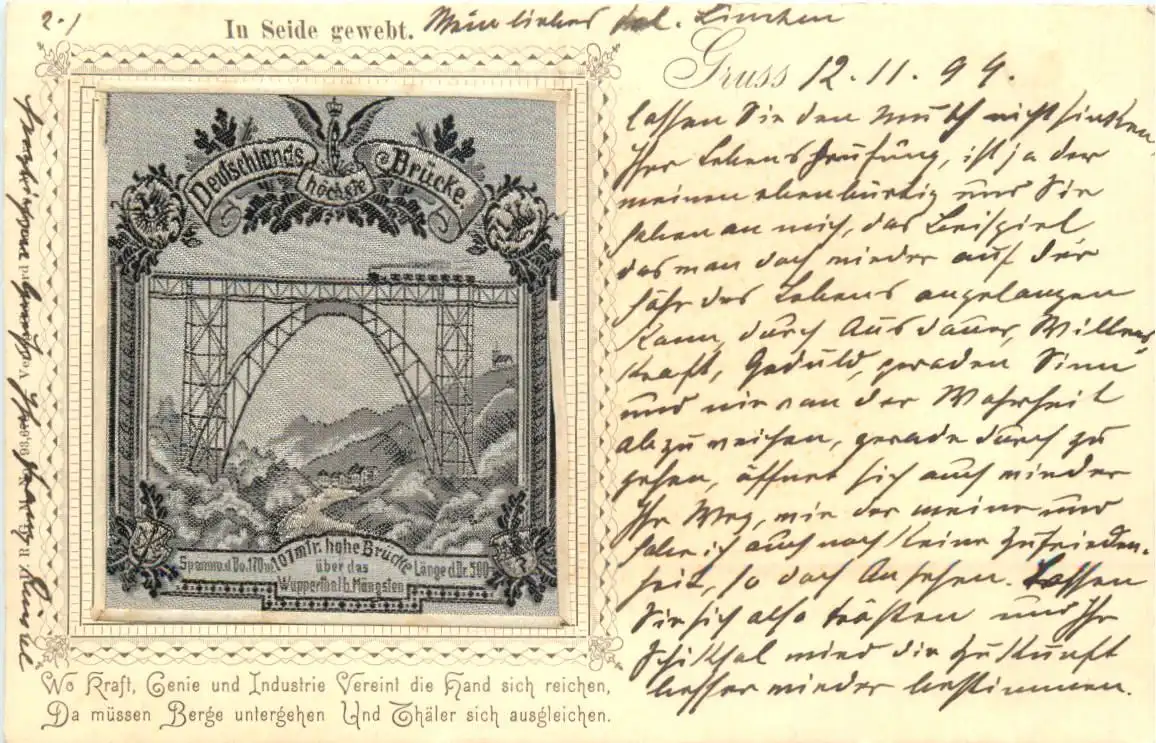 2.)
In Seide gewebt.
Mein liebes Frl. Linchen
Gruss 12.11.99.
Deutschlands höchste Brücke
Spannw. d. Bo. 170 m.
107 mtr. hohe Brücke
über das
Wupperthal b. Müngsten
Länge d. Br. 500
Wo Kraft, Genie und Industrie Vereint die Hand sich reichen,
Da müssen Berge untergehen Und Thäler sich ausgleichen.
lassen Sie den Muth nicht sinken,
Ihre Lebensprüfung, ist ja der
meinen ebenbürtig und Sie
sehen an mich, das Beispiel
das man doch wieder auf der
Höhe des Lebens angelangen
kann, durch Ausdauer, Willens
kraft, Geduld, geraden Sinn
und nie von der Wahrheit
abzuweichen, gerade durch zu
gehen, öffnet sich auch wieder
Ihr Weg, wie der meine und
habe ich auch noch keine Zufrieden-
heit, so doch Ansehen. Lassen
Sie sich also trösten und Ihr
Schiksal wird die Zukunft
besser wieder bestimmen.